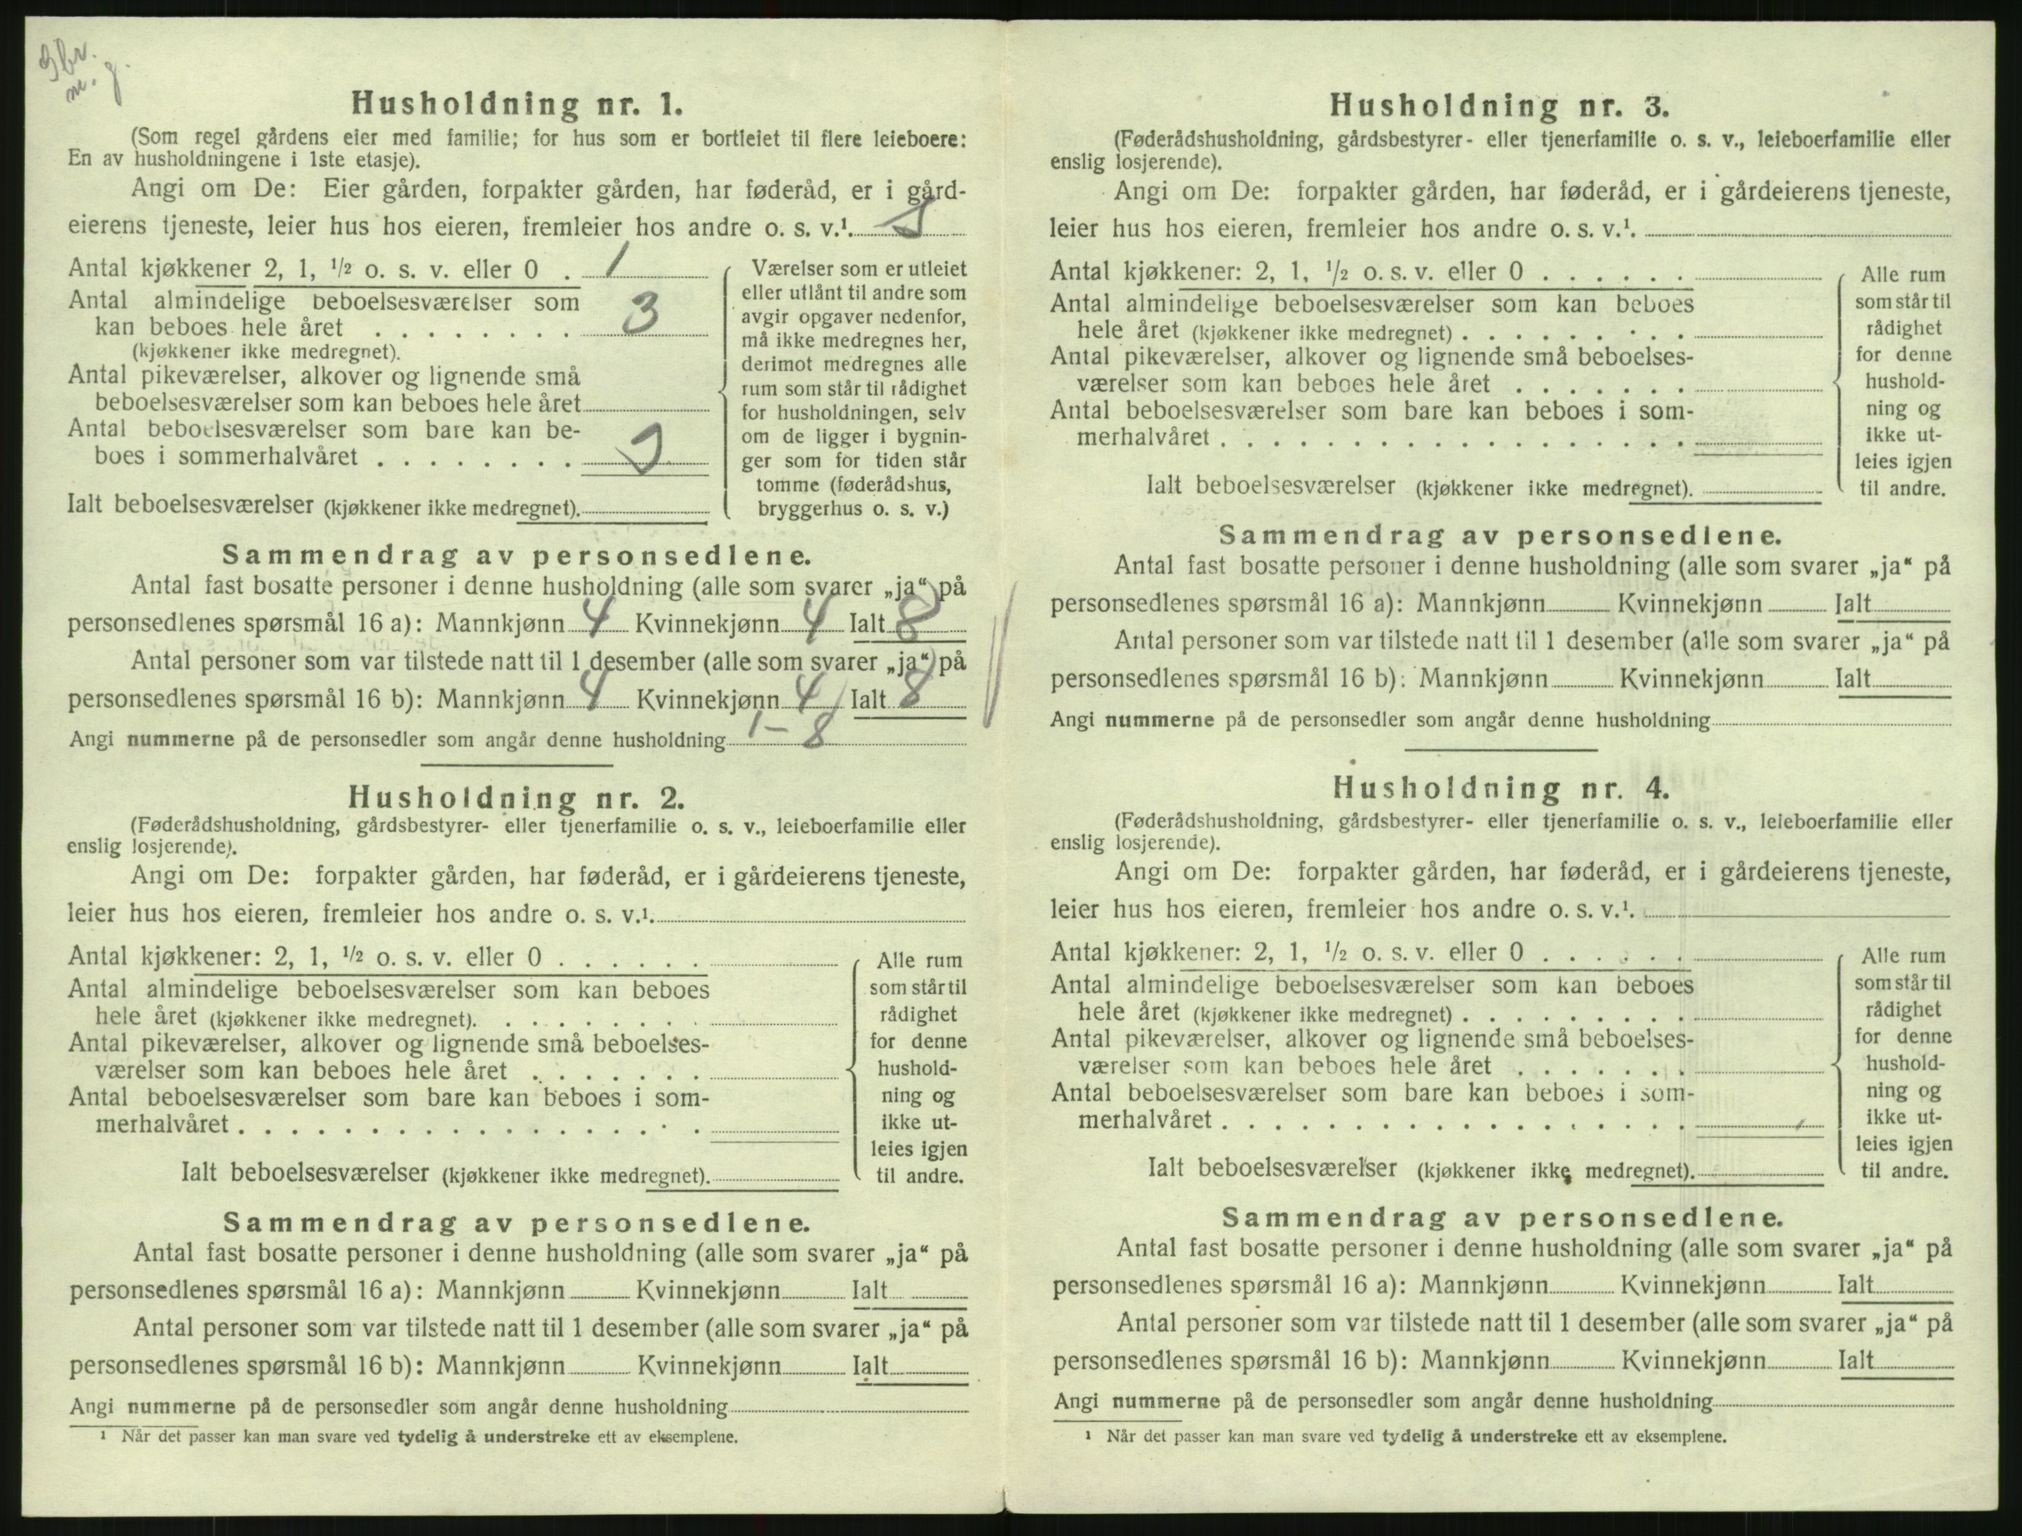 Gbr.
m. g.
Husholdning nr. 1.
(Som regel gårdens eier med familie; for hus som er bortleiet til flere leieboere:
En av husholdningene i 1ste etasje).
Angi om De: Eier gården, forpakter gården, har føderåd, er i gård-
eierens tjeneste, leier hus hos eieren, fremleier hos andre o. s. v.¹.
Antal kjøkkener 2, 1, ½ o. s. v. eller 0 . 1
Antal almindelige beboelsesværelser som
kan beboes hele året . . . . . . . . 3
(kjøkkener ikke medregnet).
Antal pikeværelser, alkover og lignende små
beboelsesværelser som kan beboes hele året
Antal beboelsesværelser som bare kan be-
boes i sommerhalvåret . . . . . . . .
Ialt beboelsesværelser (kjøkkener ikke medregnet).
Værelser som er utleiet
eller utlånt til andre som
avgir opgaver nedenfor,
må ikke medregnes her,
derimot medregnes alle
rum som står til rådighet
for husholdningen, selv
om de ligger i bygnin-
ger som for tiden står
tomme (føderådshus,
bryggerhus o. s. v.)
Sammendrag av personsedlene.
Antal fast bosatte personer i denne husholdning (alle som svarer „ja“ på
personsedlenes spørsmål 16 a): Mannkjønn 4 Kvinnekjønn 4 Ialt 8
Antal personer som var tilstede natt til 1 desember (alle som svarer „ja“ på
personsedlenes spørsmål 16 b): Mannkjønn 4 Kvinnekjønn 4 Ialt 8
Angi nummerne på de personsedler som angår denne husholdning 1-8
Husholdning nr. 2.
(Føderådshusholdning, gårdsbestyrer- eller tjenerfamilie o. s. v., leieboerfamilie eller
enslig losjerende).
Angi om De: forpakter gården, har føderåd, er i gårdeierens tjeneste,
leier hus hos eieren, fremleier hos andre o. s. v.¹.
Antal kjøkkener: 2, 1, ½ o. s. v. eller 0 . . . . . .
Antal almindelige beboelsesværelser som kan beboes
hele året (kjøkkener ikke medregnet). . . . . . . . .
Antal pikeværelser, alkover og lignende små beboelses-
værelser som kan beboes hele året . . . . . . .
Antal beboelsesværelser som bare kan beboes i som-
merhalvåret . . . . . . . . . . . . . . . . . .
Ialt beboelsesværelser (kjøkkener ikke medregnet).
Alle rum
som står til
rådighet
for denne
hushold-
ning og
ikke ut-
leies igjen
til andre.
Sammendrag av personsedlene.
Antal fast bosatte personer i denne husholdning (alle som svarer „ja“ på
personsedlenes spørsmål 16 a): Mannkjønn Kvinnekjønn Ialt
Antal personer som var tilstede natt til 1 desember (alle som svarer „ja“ på
personsedlenes spørsmål 16 b): Mannkjønn Kvinnekjønn Ialt
Angi nummerne på de personsedler som angår denne husholdning
¹ Når det passer kan man svare ved tydelig å understreke ett av eksemplene.
Husholdning nr. 3.
(Føderådshusholdning, gårdsbestyrer- eller tjenerfamilie o. s. v., leieboerfamilie eller
enslig losjerende).
Angi om De: forpakter gården, har føderåd, er i gårdeierens tjeneste,
leier hus hos eieren, fremleier hos andre o. s. v.¹.
Antal kjøkkener: 2, 1, ½ o. s. v. eller 0 . . . . . .
Antal almindelige beboelsesværelser som kan beboes
hele året (kjøkkener ikke medregnet) . . . . . . . . .
Antal pikeværelser, alkover og lignende små beboelses-
værelser som kan beboes hele året . . . . . . .
Antal beboelsesværelser som bare kan beboes i som-
merhalvåret . . . . . . . . . . . . . . . . . .
Ialt beboelsesværelser (kjøkkener ikke medregnet).
Alle rum
som står til
rådighet
for denne
hushold-
ning og
ikke ut-
leies igjen
til andre.
Sammendrag av personsedlene.
Antal fast bosatte personer i denne husholdning (alle som svarer „ja“ på
personsedlenes spørsmål 16 a): Mannkjønn Kvinnekjønn Ialt
Antal personer som var tilstede natt til 1 desember (alle som svarer „ja“ på
personsedlenes spørsmål 16 b): Mannkjønn Kvinnekjønn Ialt
Angi nummerne på de personsedler som angår denne husholdning
Husholdning nr. 4.
(Føderådshusholdning, gårdsbestyrer- eller tjenerfamilie o. s. v., leieboerfamilie eller
enslig losjerende).
Angi om De: forpakter gården, har føderåd, er i gårdeierens tjeneste,
leier hus hos eieren, fremleier hos andre o. s. v.¹.
Antal kjøkkener: 2, 1, ½ o. s. v. eller 0 . . . . . .
Antal almindelige beboelsesværelser som kan beboes
hele året (kjøkkener ikke medregnet) . . . . . . . . .
Antal pikeværelser, alkover og lignende små beboelses-
værelser som kan beboes hele året . . . . . . .
Antal beboelsesværelser som bare kan beboes i som-
merhalvåret . . . . . . . . . . . . . . . . . .
Ialt beboelsesværelser (kjøkkener ikke medregnet).
Alle rum
som står til
rådighet
for denne
hushold-
ning og
ikke ut-
leies igjen
til andre.
Sammendrag av personsedlene.
Antal fast bosatte personer i denne husholdning (alle som svarer „ja“ på
personsedlenes spørsmål 16 a): Mannkjønn Kvinnekjønn Ialt
Antal personer som var tilstede natt til 1 desember (alle som svarer „ja“ på
personsedlenes spørsmål 16 b): Mannkjønn Kvinnekjønn Ialt
Angi nummerne på de personsedler som angår denne husholdning
¹ Når det passer kan man svare ved tydelig å understreke ett av eksemplene.